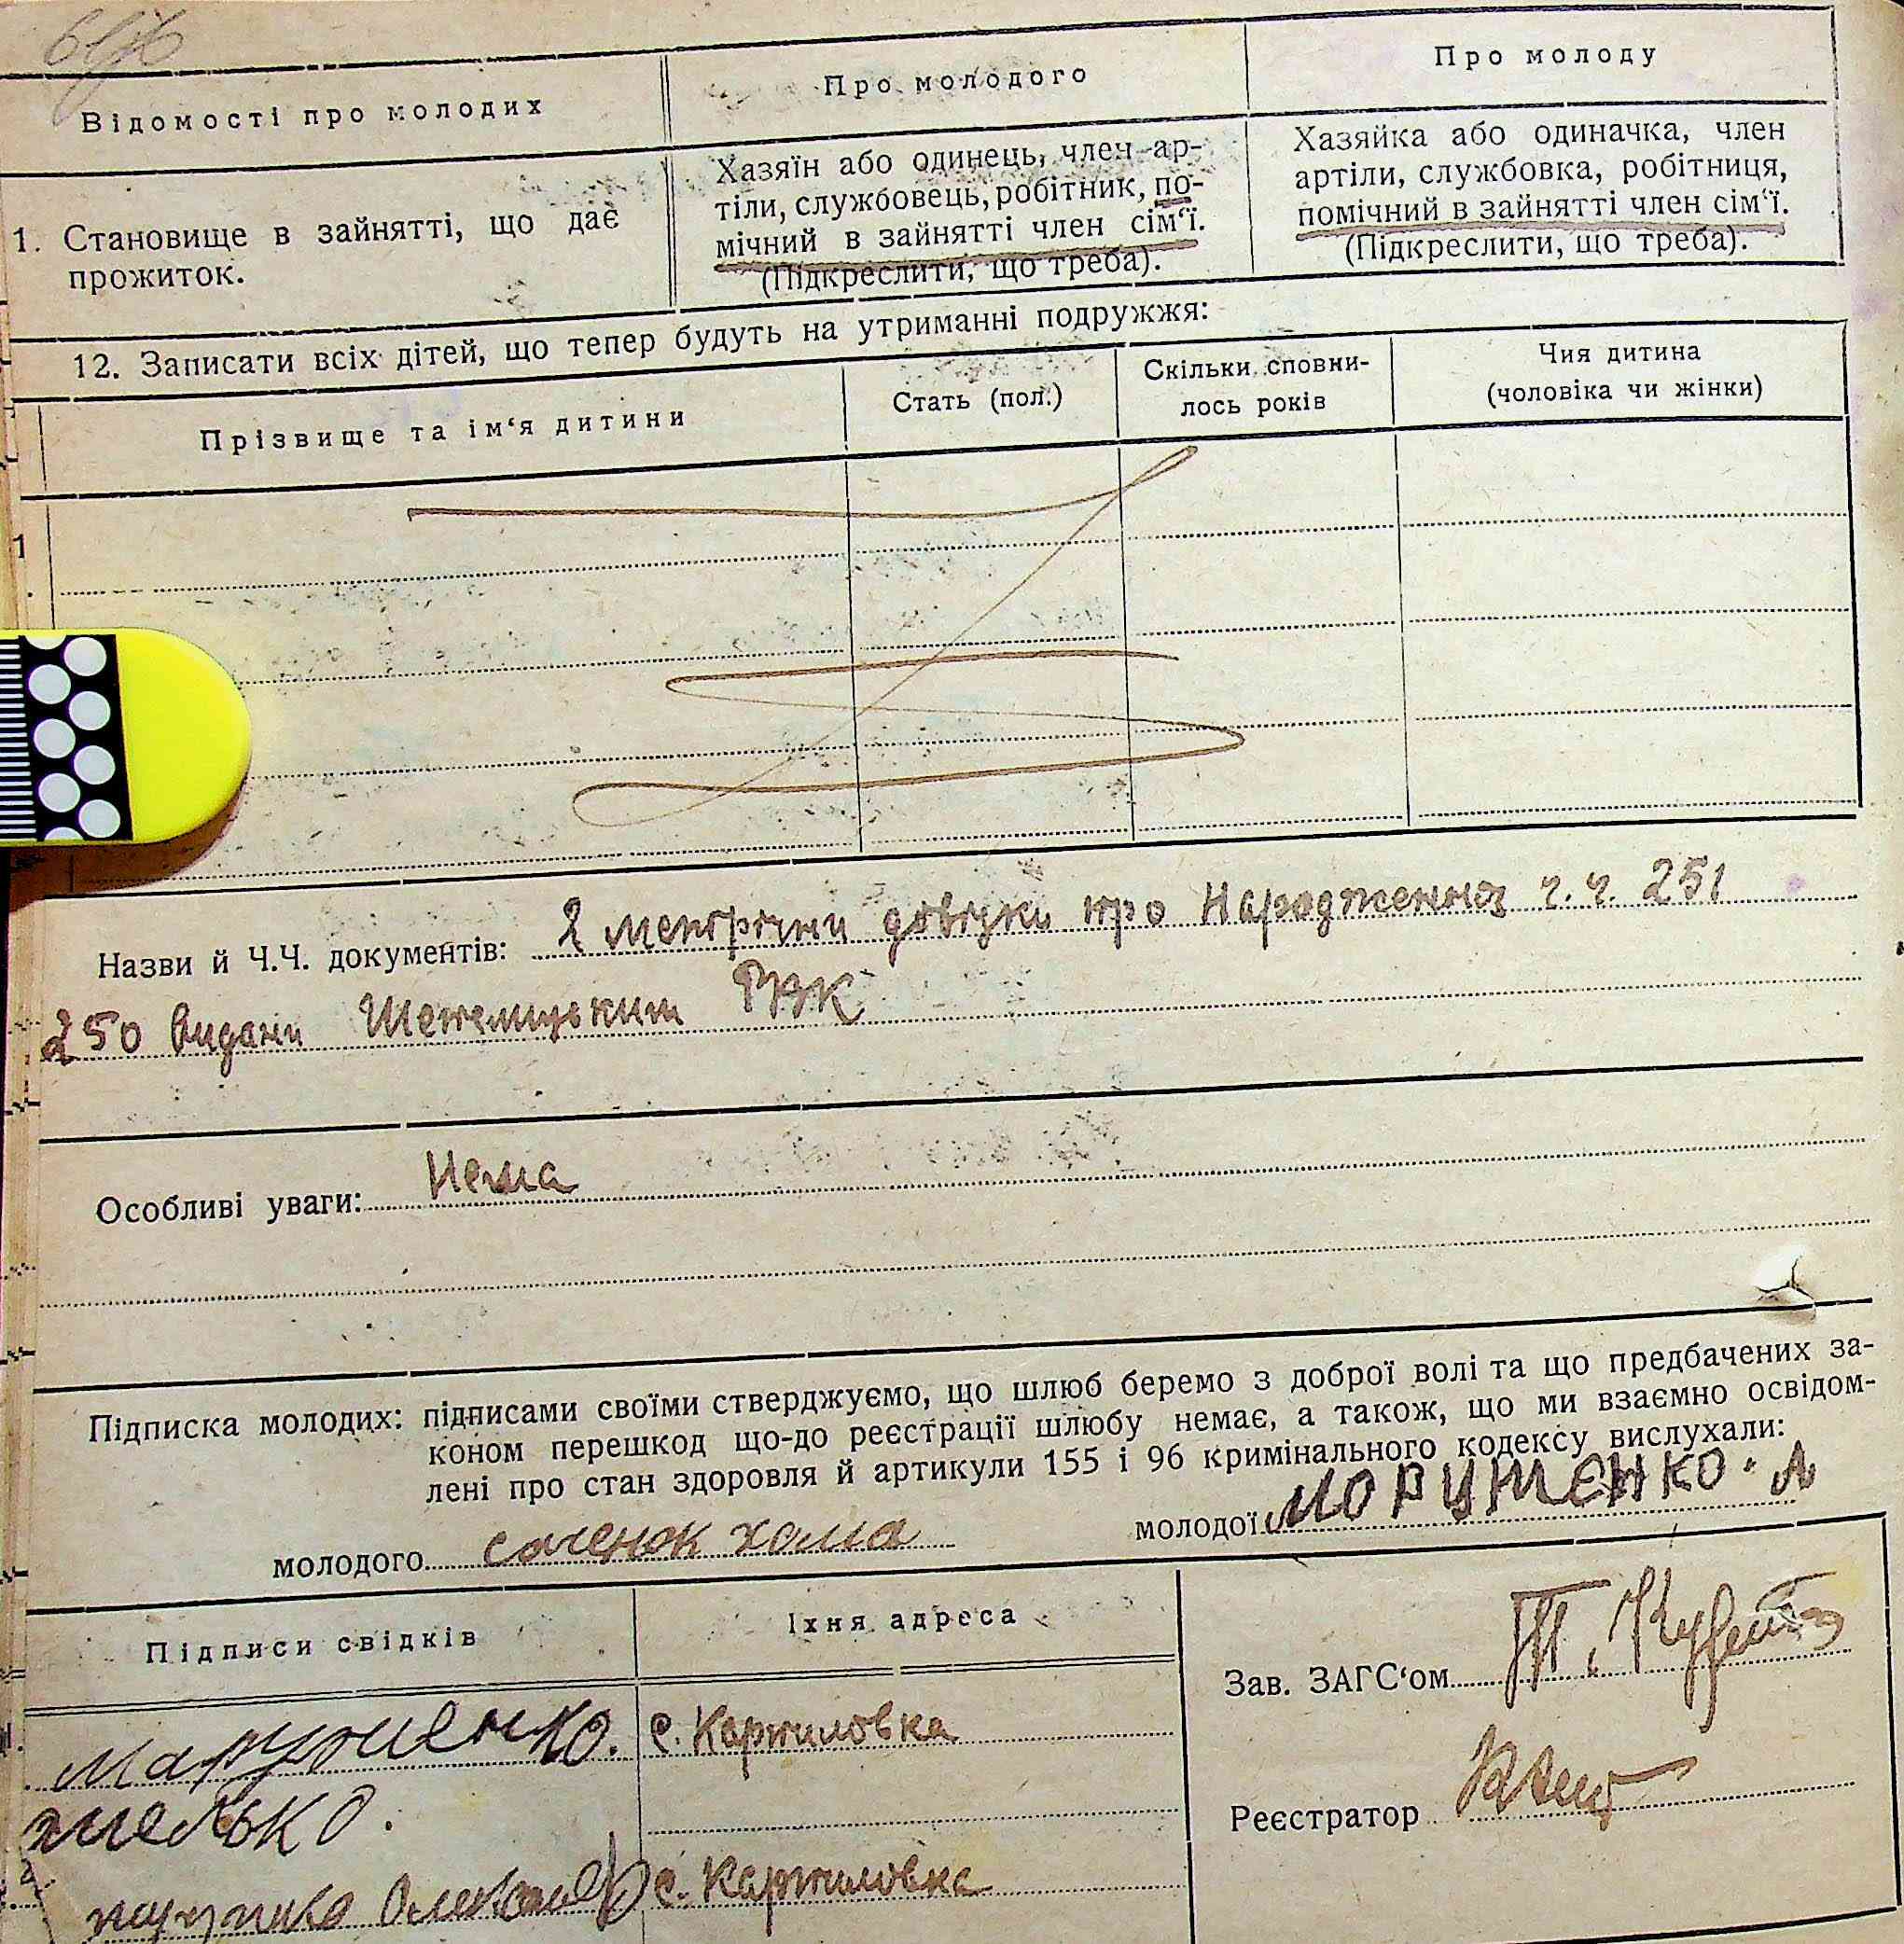 Відомості про молодих
Про молодого
Про молоду
1. Становище в зайнятті, що дає
прожиток.
Хазяїн або одинець, член ар-
тіли, службовець, робітник, по-
мічний в зайнятті член сім‘ї.
(Підкреслити, що треба).
Хазяйка або одиначка, член
артіли, службовка, робітниця,
помічний в зайнятті член сім‘ї.
(Підкреслити, що треба).
12. Записати всіх дітей, що тепер будуть на утриманні подружжя:
Прізвище та ім‘я дитини
Стать (пол.)
Скільки сповни-
лось років
Чия дитина
(чоловіка чи жінки)
1
Назви й Ч.Ч. документів: 2 метричні довідки про Народження ч. ч. 251
250 видани
Особливі уваги: Нема
Підписка молодих: підписами своїми стверджуємо, що шлюб беремо з доброї волі та що предбачених за-
коном перешкод що-до реєстрації шлюбу немає, а також, що ми взаємно освідом-
лені про стан здоровля й артикули 155 і 96 кримінального кодексу вислухали:
молодого саченок хома
молодої
Підписи свідків
Їхня адреса
Зав. ЗАГС‘ом
с. Карпиловка
Реєстратор
с. Карпиловка